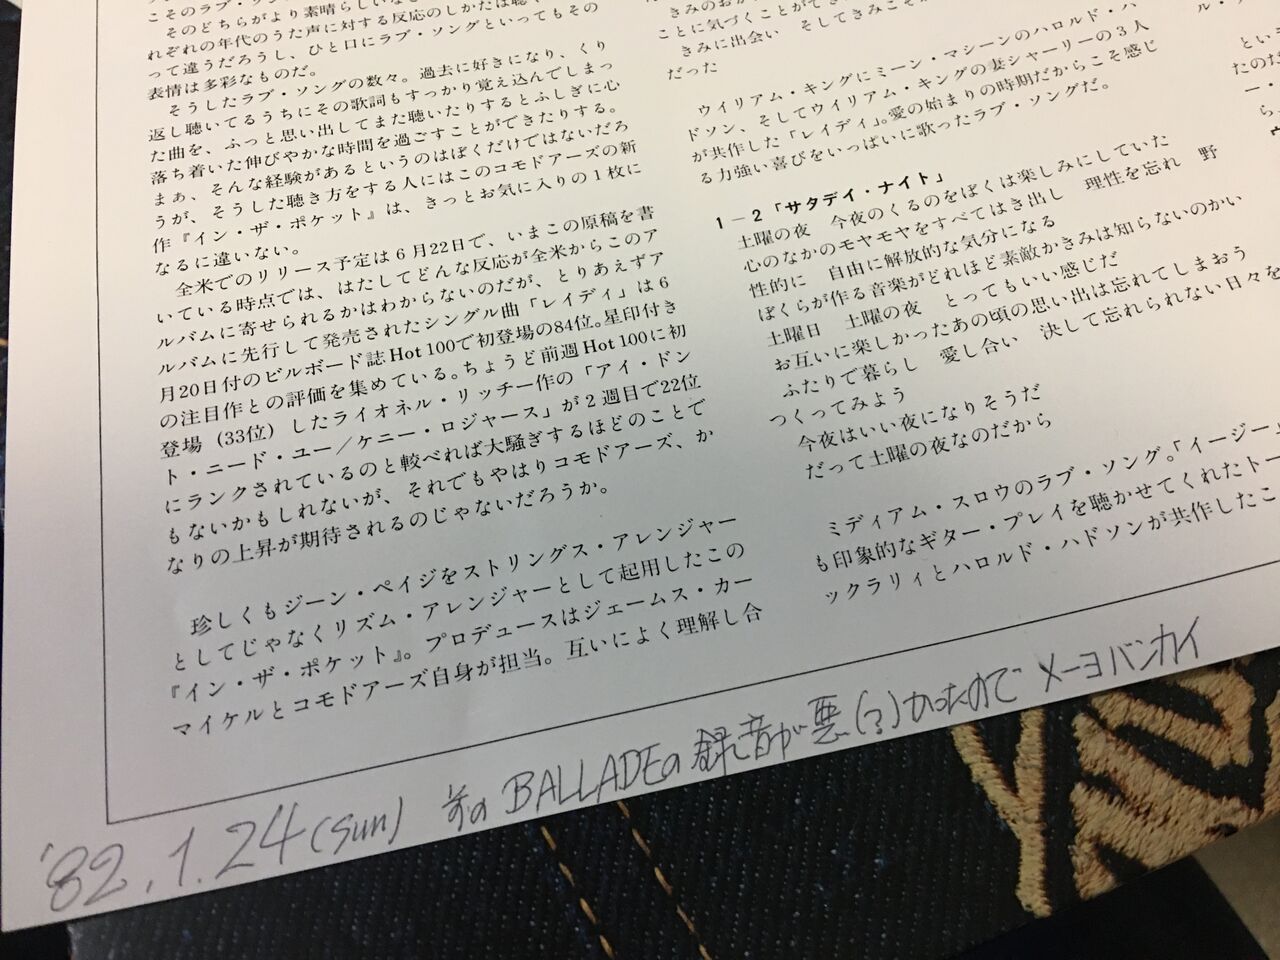 こそのラブ・ソン
そのどちらがより素晴らしいなど
れぞれの年代のうた声に対する反応のしかたは聴
って違うだろうし、ひと口にラブ・ソングといってもその
表情は多彩なものだ。
そうしたラブ・ソングの数々。過去に好きになり、くり
返し聴いてるうちにその歌詞もすっかり覚え込んでしまっ
た曲を、ふっと思い出してまた聴いたりするとふしぎに心
落ち着いた伸びやかな時間を過ごすことができたりする。
まぁ、そんな経験があるというのはぼくだけではないだろ
うが、そうした聴き方をする人にはこのコモドアーズの新
作『イン・ザ・ポケット』は、きっとお気に入りの1枚に
なるに違いない。
全米でのリリース予定は6月22日で、いまこの原稿を書
いている時点では、はたしてどんな反応が全米からこのア
ルバムに寄せられるかはわからないのだが、とりあえずア
ルバムに先行して発売されたシングル曲「レイディ」は6
月20日付のビルボード誌Hot 100で初登場の84位。星印付き
の注目作との評価を集めている。ちょうど前週Hot 100に初
登場（33位）したライオネル・リッチー作の「アイ・ドン
ト・ニード・ユー／ケニー・ロジャース」が2週目で22位
にランクされているのと較べれば大騒ぎするほどのことで
もないかもしれないが、それでもやはりコモドアーズ、か
なりの上昇が期待されるのじゃないだろうか。
珍しくもジーン・ペイジをストリングス・アレンジャー
としてじゃなくリズム・アレンジャーとして起用したこの
『イン・ザ・ポケット』。プロデュースはジェームス・カー
マイケルとコモドアーズ自身が担当。互いによく理解し合
ことに気づくことができ
きみに出会い そしてきみこそが
だった
ウイリアム・キングにミーン・マシーンのハロルド・ハ
ドソン、そしてウイリアム・キングの妻シャーリーの3人
が共作した「レイディ」。愛の始まりの時期だからこそ感じ
る力強い喜びをいっぱいに歌ったラブ・ソングだ。
1－2「サタデイ・ナイト」
土曜の夜 今夜のくるのをぼくは楽しみにしていた
心のなかのモヤモヤをすべてはき出し 理性を忘れ 野
性的に 自由に解放的な気分になる
ぼくらが作る音楽がどれほど素敵かきみは知らないのかい
土曜日 土曜の夜 とってもいい感じだ
お互いに楽しかったあの頃の思い出は忘れてしまおう
ふたりで暮らし 愛し合い 決して忘れられない日々を
つくってみよう
今夜はいい夜になりそうだ
だって土曜の夜なのだから
ミディアム・スロウのラブ・ソング。「イージー」
も印象的なギター・プレイを聴かせてくれたトー
ックラリィとハロルド・ハドソンが共作したこ
ル・
という
たのだ
ー・
ら、
'82.1.24(sun) 前の BALLADEの 録音が悪(?)かったので メーヨバンカイ